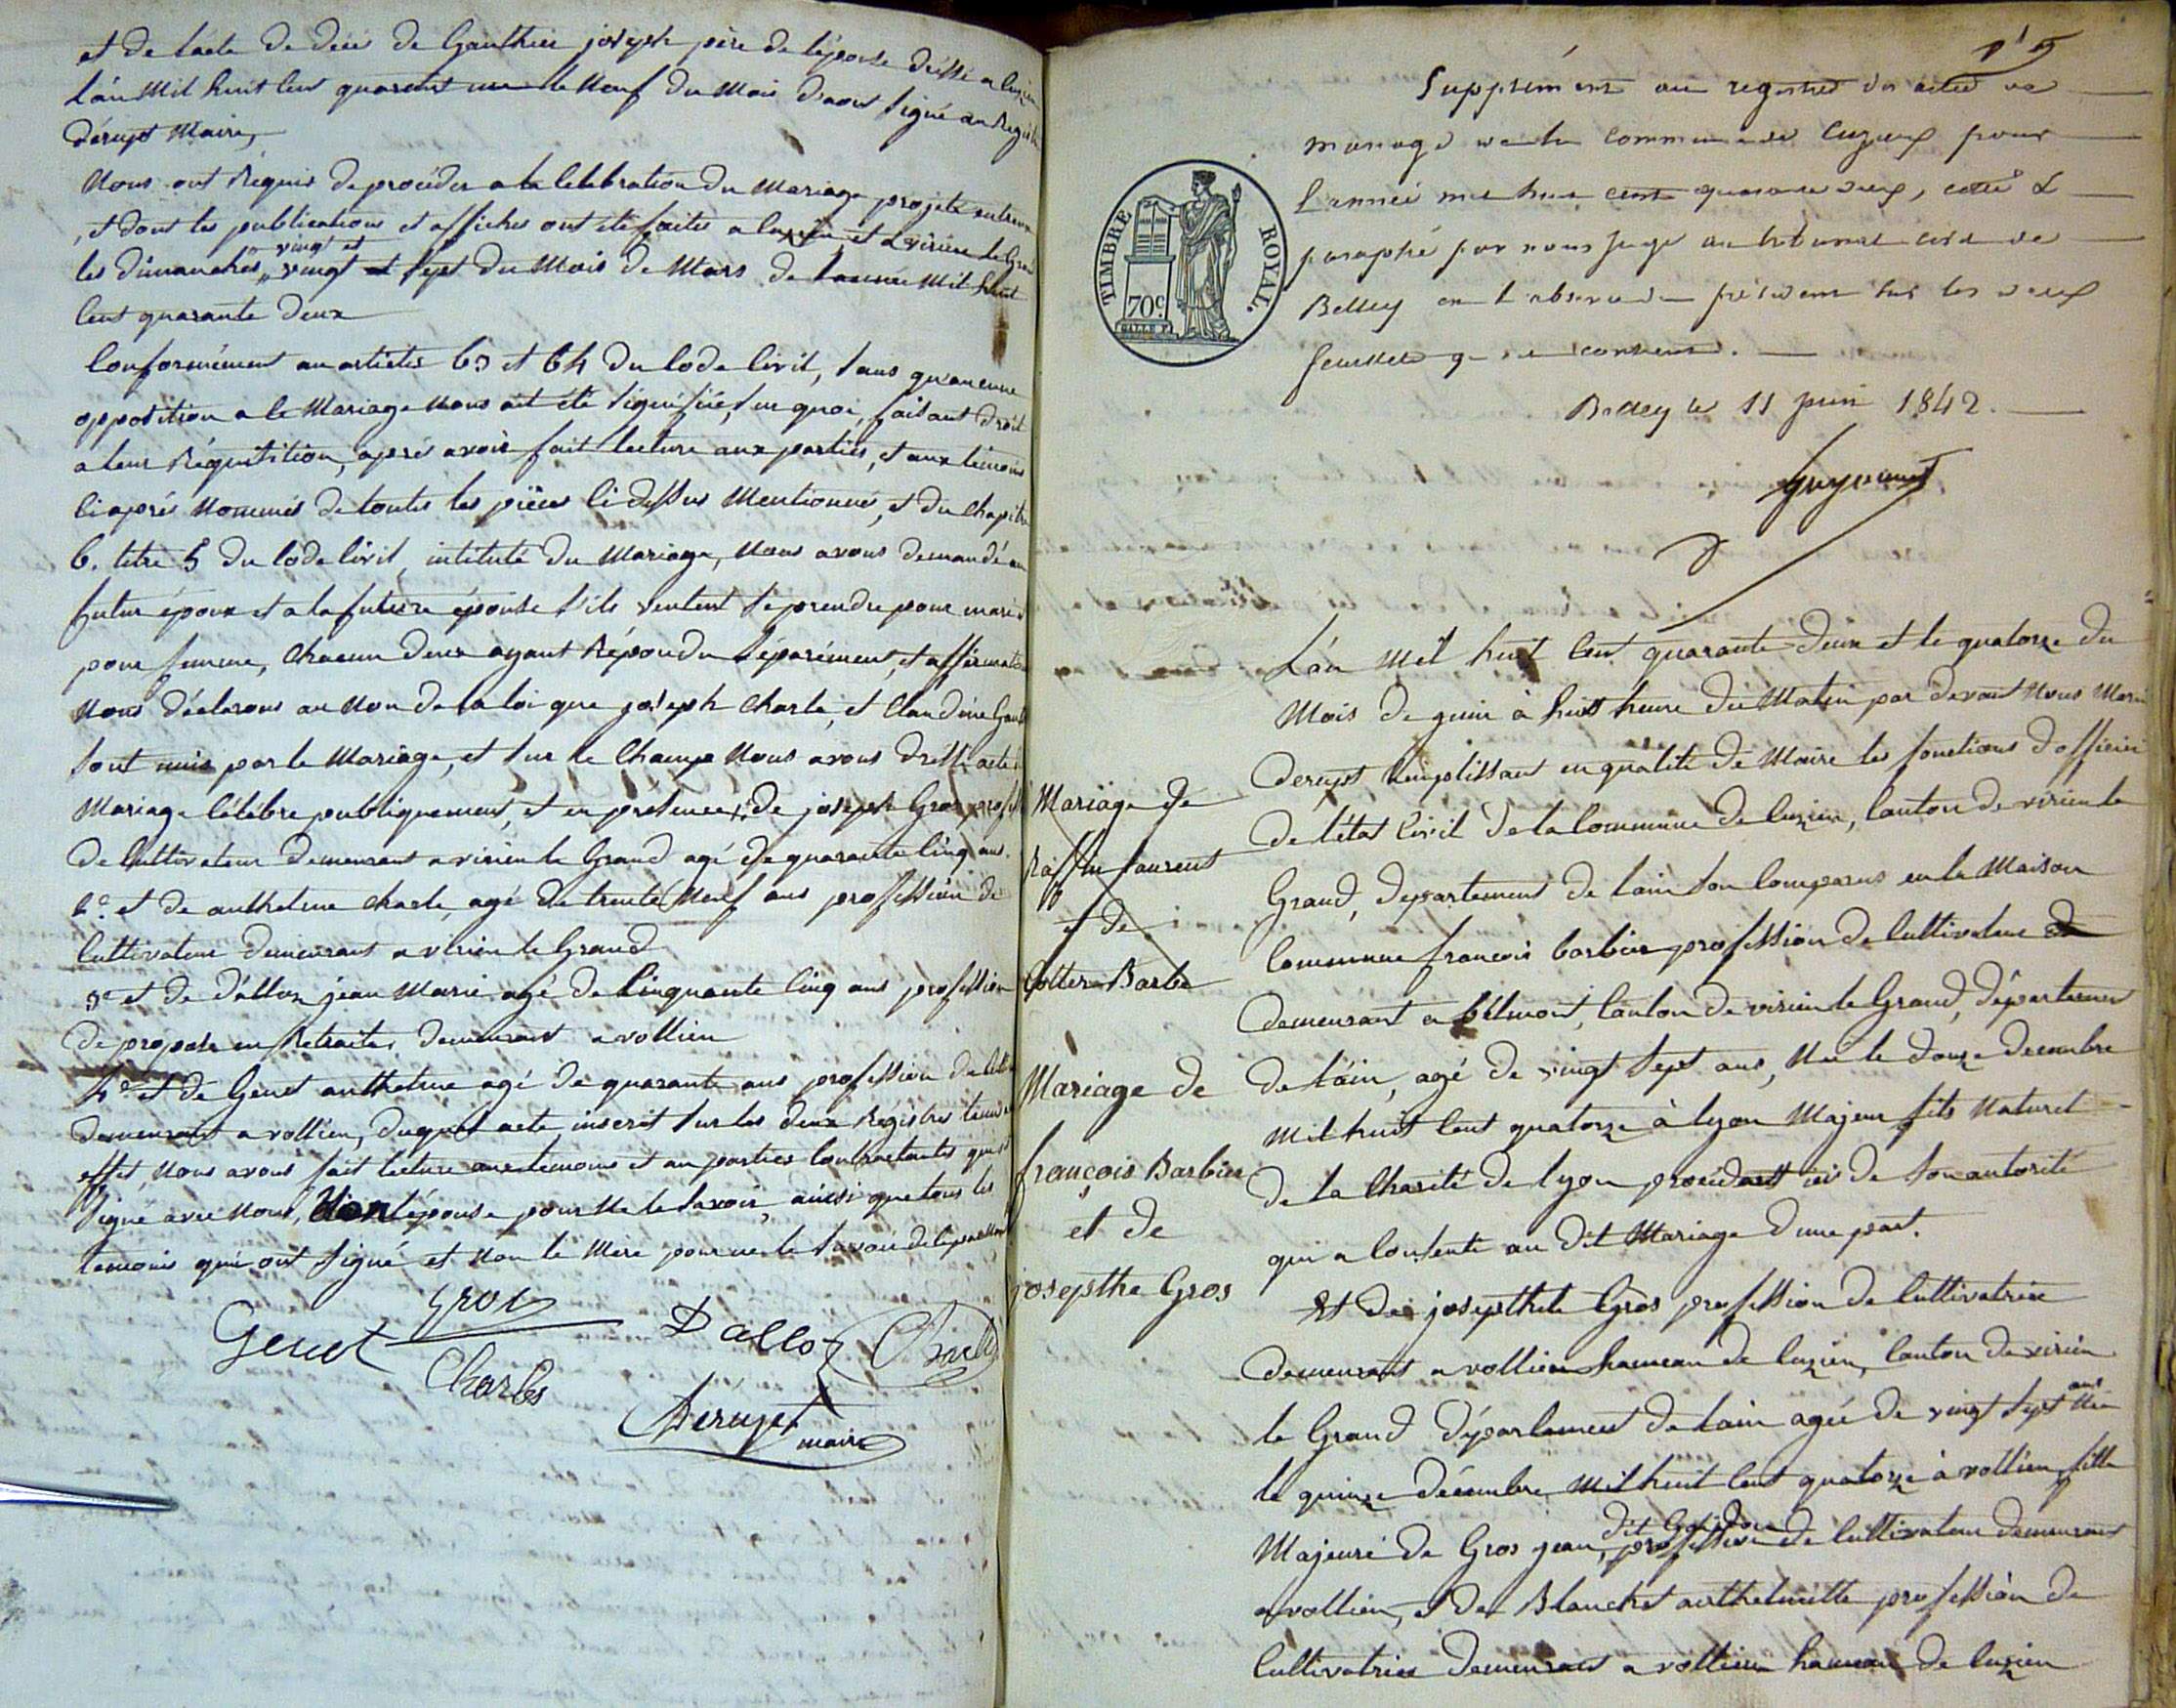 et de lacte de déces de Gauthier joseph père de lépouse dréssé a
Lán Mil huit Cent quarente un le Neuf du Mois daout Signé au Registre
dérupt Maire,
Nous ont Réquis de procéder a la Célébration du Mariage projeté entreux
, et dont les publications et affiches ont été faites a luzieu et a virieu le Grand
vingt et
les dimanches vingt et Sept du Mois de Mars de lannée Mil huit
Cent quarante deux
Conformément au articles 63 et 64 du Code Civil, Sans quaucune
opposition a le Mariage Nous ait été Signifiée, Sur quoi, faisant droit
a leur Réquisition, aprés avoir fait lecture aux parties, et aux témoins
Ciaprés Nommés de toutes les pièces Ci dessus Mentionnés, et du Chapitre
6. titre 5 du Code Civil, intitulé du Mariage, Nous avons demandé au
futur époux et a la future épouse S'ils veulent Se prendre pour mari et
pour femme, Chacun deux ayant Répondu Séparément, et affirmativ
Nous déclarons au Nom de la loi que joseph Charle, et Claudine Gaut
Sont unis par le Mariage, et Sur le Champ Nous avons dréssé acte
Mariage Célébre publiquement, et en présence, de joseph Gros profes
de Cultivateur demeurant a virieu le Grand agé de quarante Cinq ans.
2e. et de anthelme charle, agé de trente Neuf ans profession de
Cultivateur demeurant a virieu le Grand
3e et de dálloz jean Marie agé de Cinquante Cinq ans profession
de préposé en Retraite, demeurant a vollien
4e et de Genet anthelme agé de quarante ans profession de Cultiv
demeurant a vollien, duquel acte inscrit Sur les deux Registres tenus
effet, Nous avons fait lecture aux temoins et au parties Contractantes qui
Signé avec Nous, Non lépouse pour Ne le Savoir, ainsi que tous les
temoins qui ont Signé et Non la Mère pour ne le Savoir
Genet Gros Dalloz Charle
Charles
Dérupt
maire
Supplément au registre des actes de
mariage de la commune de Cuzieu pour
l'année mil huit cent quarante deux, coté &
paraphé par nous juge au tribunal civil de
Belley en l'absence du président sur les deux
feuillets qu'il contient.
Belley le 11 juin 1842.
TIMBRE ROYAL.
70c.
Lán Mil huit Cent quarante deux et le quatorze du
Mois de juin à huit heure du Matin par devant Nous Marie
derupt Remplissant en qualité de Maire les fonctions dofficier
de létat Civil de la Commune de luzieu, Canton de virieu le
Grand, département de lain Son Comparus en la Maison
Commune françois barbier profession de Cultivateur
demeurant a bélmont, Canton de virieu le Grand, département
de láin, agé de vingt Sept ans, Né le douze decembre
Mil huit Cent quatorze à lyon Majeur fils Naturel
de la Charité de lyon procédant ici de Son autorité
qui a Consenti au dit Mariage dune part.
Et de josepthete Gros profession de Cultivatrice
demeurant a vollien hameau de luzieu, Canton de virieu
ans
le Grand département de lain agée de vingt Sept Née
le quinze décembre Mil huit Cent quatorze à vollien, fille
Majeure de Gros jean, profession de Cultivateur demeurant
a vollien, et de Blanchet anthelmitte profession de
Cultivatrice demeurant a vollien hameau de luzieu
Mariage de
Raffin laurent
et de
Mariage de
françois Barbier
et de
josepthe Gros